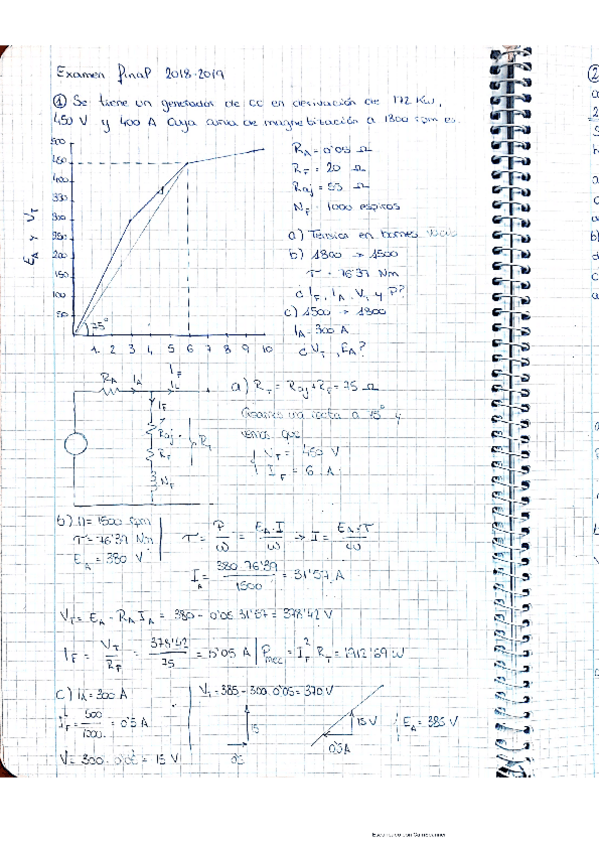 Examen final 2018-2019
① Se tiene un generador de CC en derivación de 172 Kw,
450 V y 400 A cuya curva de magnetización a 1800 rpm es.
EA y VT
500
450
400
350
300
250
200
150
100
50
75°
1 2 3 4 5 6 7 8 9 10
RA = 0'05 Ω
RF = 20 Ω
Raj = 55 Ω
NF = 1000 espiras
a) Tensión en bornes vacío
b) 1800 → 1500
τ = 76'39 Nm
¿ IF, IA, VT y P?
c) 1500 → 1800
IA = 300 A
¿ VT, EA?
RA IA IF IL
IF
Raj
RF
RT
NF
a) RT = Raj + RF = 75 Ω
recta a 75° y
vemos que
VT = 450 V
IF = 6 A
b) n = 1500 rpm
τ = 76'39 Nm
EA = 380 V
τ = P/ω = EA·I/ω → I = EA·τ/ω
IA = 380·76'39/1500 = 31'57 A
VT = EA - RA IA = 380 - 0'05·31'57 = 378'42 V
IF = VT/RF = 378'42/75 = 5'05 A
Pmec = IF² RT = 1912'69 W
c) IA = 300 A
IF = 500/1000 = 0'5 A
V = 300·0'05 = 15 V
VT = 385 - 300·0'05 = 370 V
15
0'5
15 V
0'5 A
EA = 385 V
②
Escaneado con CamScanner